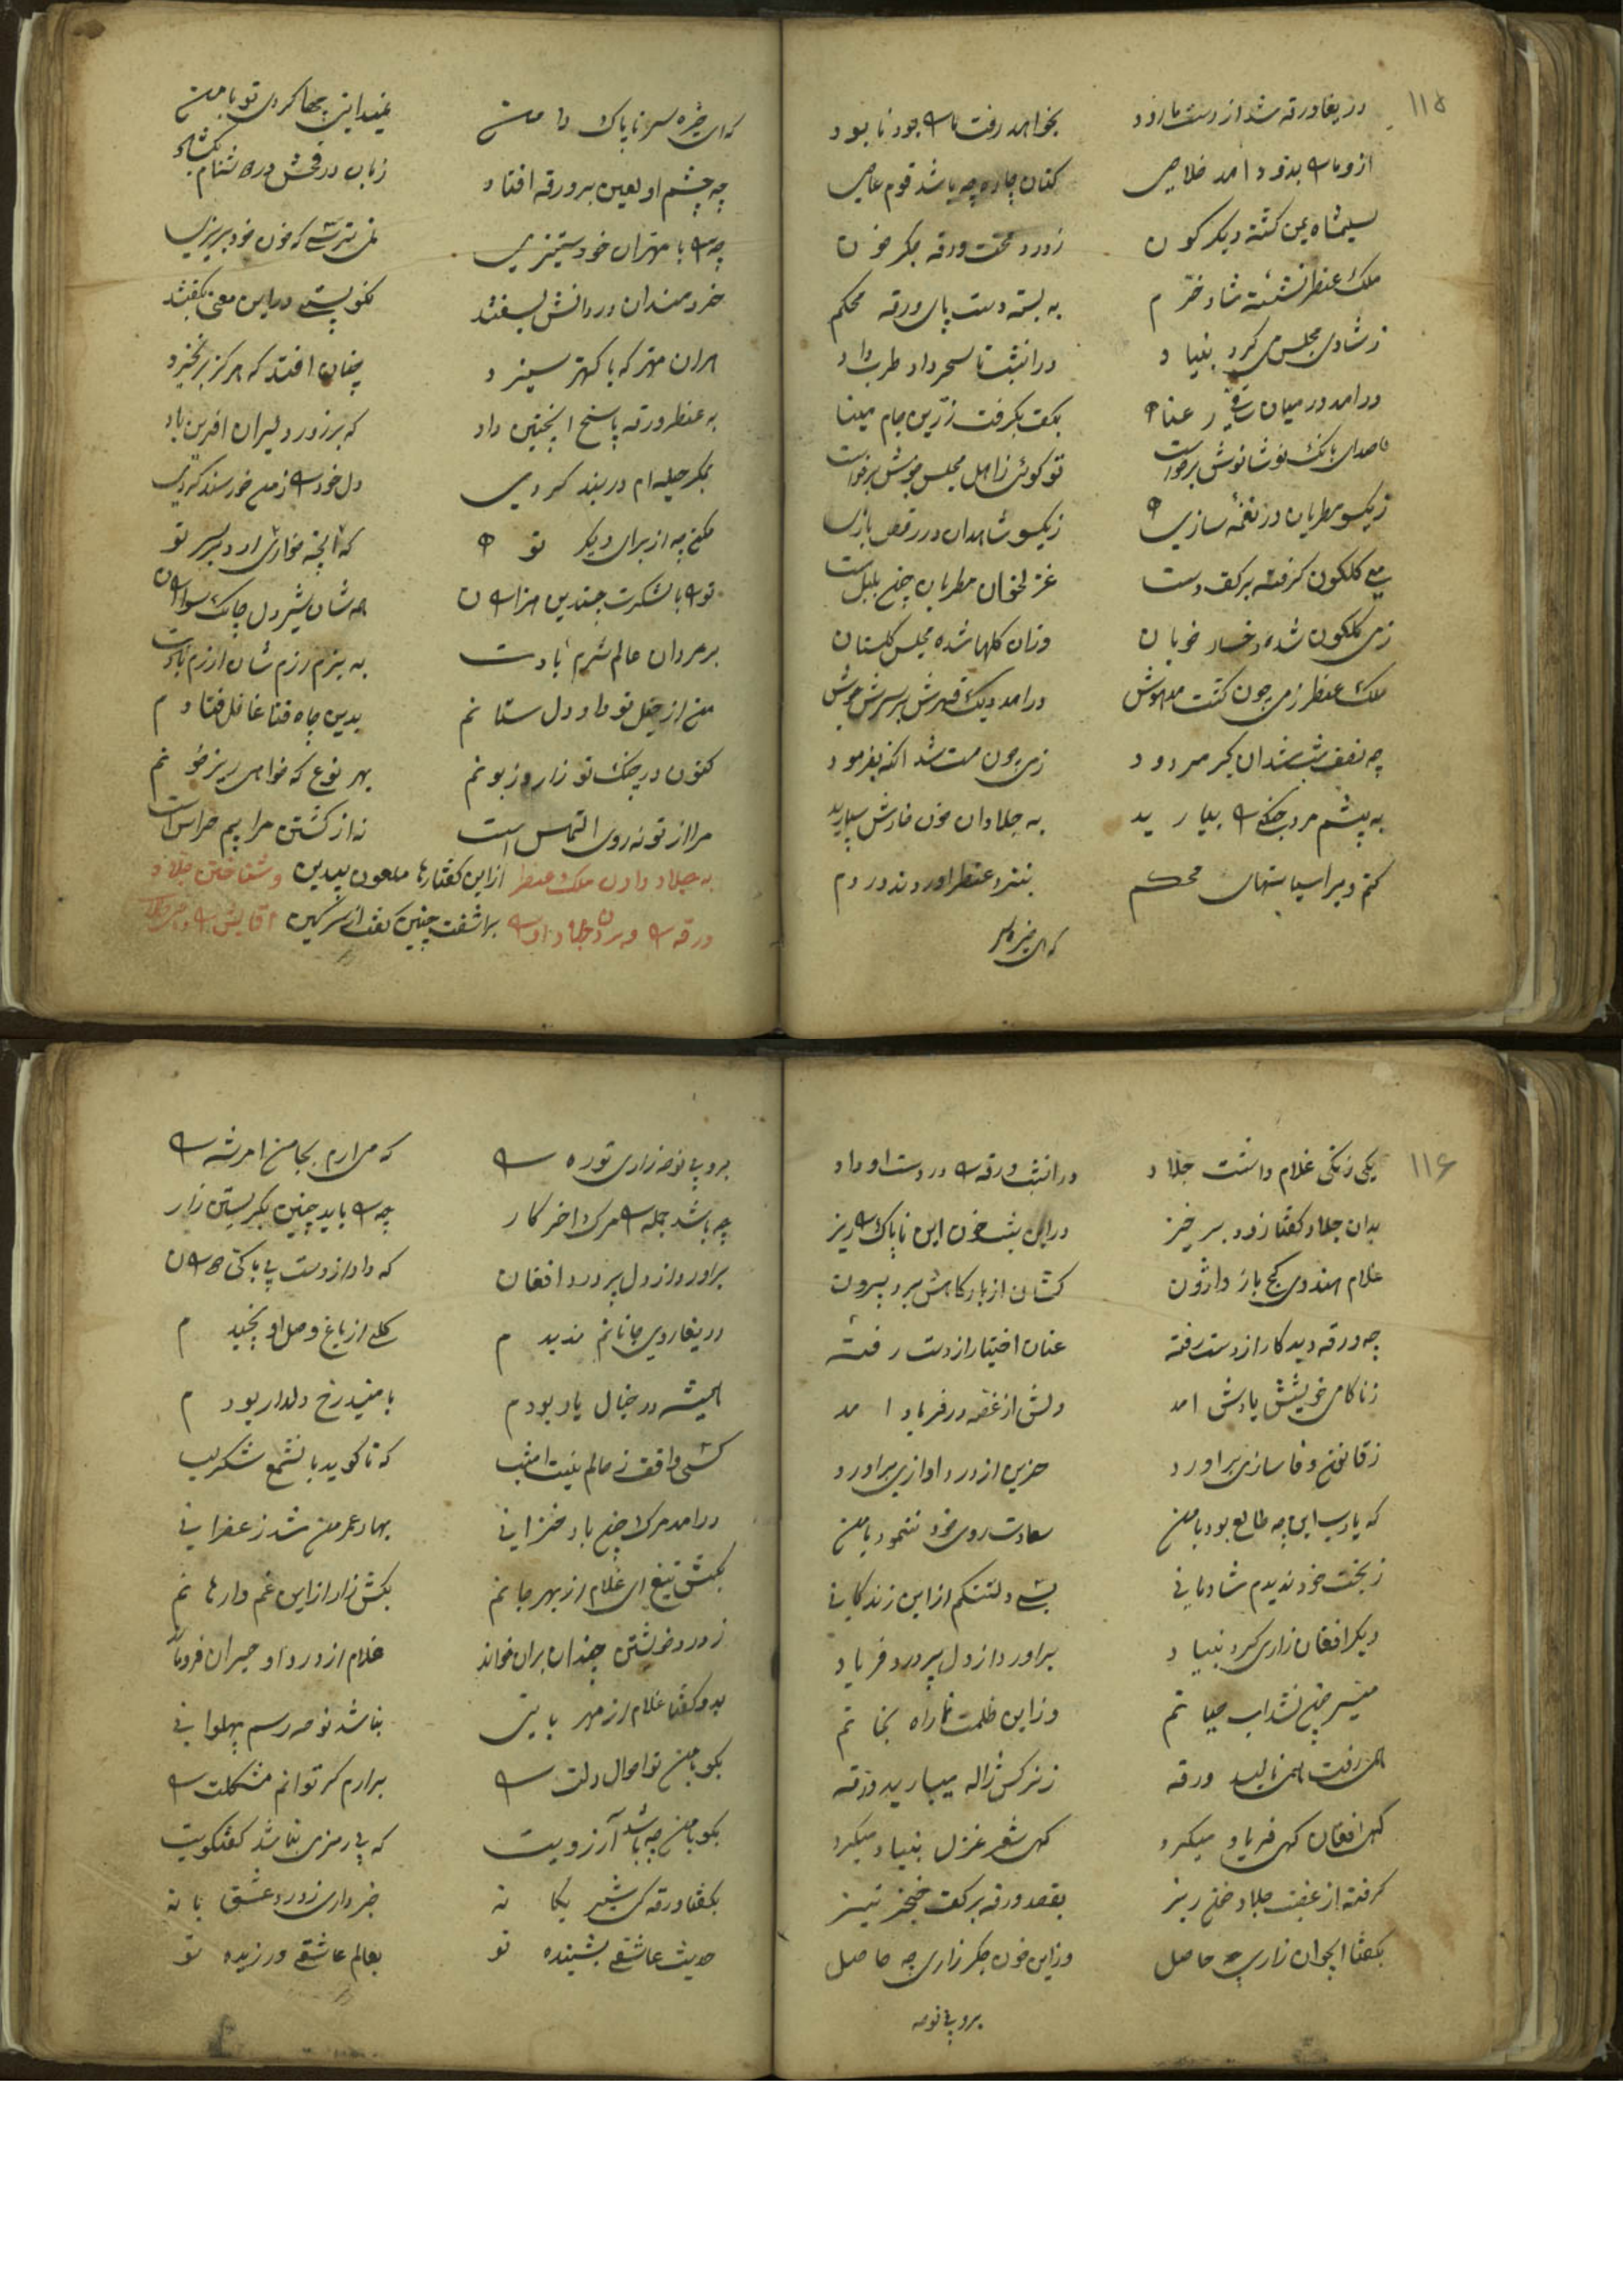 ۱۱۵
دریغا ورقه شد از دست ما زود بخواهد رفت ما را جود نابود
از و ما را بدو د امد خلاصی کنان چاره چه باشد قوم عاصی
سلیمشاه یمن کشته دیکر کون زدرد محنت ورقه جکر خون
ملک عنطر نشسته شاد خرم به بسته دست پای ورقه محکم
زشادی مجلسی کرد بنیاد در انشب تا سحر داد طرب داد
درامد در میان ساقی رعنا بکف بکرفت زرین جام مینا
صدای بانک نوشانوش برخواست تو کوئی زاهل مجلس هوش برخواست
زیکسو مطربان در نغمه سازی زیکسو شاهدان در رقص بازی
می کلکون کرفته بر کف دست غزلخوان مطربان چنچ بلبل مست
زمی کلکون شده رخسار خوبان وزان کلها شده مجلس کلستان
ملک عنطر زمی چون کشت مدهوش درامد دیک قهرش بر سرش جوش
زمی چون مست شد انکه بفرمود
به پیشم مرد جنکی را بیارید به جلادان خون خارش سپارید
کنم ویرا سیاستهای محکم بنزد عنطر اوردند در دم
که ای خیره سر
که ای خیره سر ناپاک دامن نمیدانی چها کردی تو بامن
چه چشم او لعین بر ورقه افتاد زبان در فحش در دشنام بکشاد
چرا با مهتران خود ستیزی نمی ترسی که خون خود بریزی
خردمندان در دانش بسفتند نکو پستی در این معنی بکفتند
هران مهتر که با کهتر ستیزد چنان افتد که هرکز بر نخیزد
به عنطر ورقه پاسخ اینچنین داد که بر زور دلیران افرین باد
بمکر حیله ام در بند کردی دل خود را زمن خورسند کردی
مکن چه از برای دیکر تو
تو را با لشکرت چندین هزاران چه شان شیر دل چابک سواران
بر مردان عالم شرم بادت به بزم رزم شان ازرم بادت
من از حیل تو داد دل ستانم بدین چاه فنا غافل فتادم
کنون در چنک تو زار و زبونم بهر نوع که خواهی ریز خونم
مرا از تو نه روی التماس است نه از کشتن مرا بیم هراس است
به جلاد دادن ملک عنطر از این کفتارها ملعون بیدین وشناختن جلاد
ورقه را وبردن جلاد او را براشفت چنین کفت از سر کین
۱۱۶
یکی زنکی غلام داشت جلاد در انشب ورقه را در دست او داد
بدان جلاد کفتا زود بر خیز در این شب خون این ناپاک را ریز
غلام هندوی کج باز وارون کشان از بارکاهش برد بیرون
چه ورقه دید کار از دست رفته عنان اختیار از دست رفته
زناکامی خویشش یادش امد دلش از غصه در فریاد امد
زقانون وفا سازی براورد حزین از درد اوازی براورد
که یارب این چه طالع بود بامن سعادت روی خود ننمود بامن
زبخت خود ندیدم شادمانی بسی دلتنکم از این زندکانی
دیکر افغان زاری کرد بنیاد براورد از دل پر درد فریاد
میسر چون نشد اب حیاتم وز این ظلمت نما راه نجاتم
همی رفت همی نالید ورقه زنرکس ژاله میبارید ورقه
کهی افغان کهی فریاد میکرد کهی شعر غزل بنیاد میکرد
کرفته از عقب جلاد خون ریز بقصد ورقه بر کف خنجر تیز
بکفتا ایجوان زاری چه حاصل وز این خون جکر زاری چه حاصل
برو پی نوحه
برو پی نوحه زاری تو ره را که می ارم بجا من امر شه را
چه باشد جمله را مرک اخر کار چرا باید چنین بکریستن زار
براورد از دل پر درد افغان که داد از دست بی باکی دوران
دریغا روی جانانم ندیدم کلی از باغ وصل او نچیدم
همیشه در خیال یار بودم بامید رخ دلدار بودم
کسی واقف زحالم نیست امشب که تا کوید بانشمع شکر لب
درامد مرک چون باد خزانی بهار عمر من شد زعفرانی
بکش تیغ ای غلام از بهر جانم بکش زار از این غم وارهانم
زدرد خویشتن چندان بران خواند غلام از درد او حیران فرو ماند
بدو کفتا غلام از مهربانی نباشد نوحه رسم پهلوانی
بکو بامن تو احوال دلت را برارم کر توانم مشکلت را
بکو بامن چه باشد آرزویت که بی رمزی نباشد کفتکویت
بکفتا ورقه کی شیر یکانه خبر داری زدرد عشق یا نه
حدیث عاشقی بشنیده تو بعالم عاشقی ورزیده تو